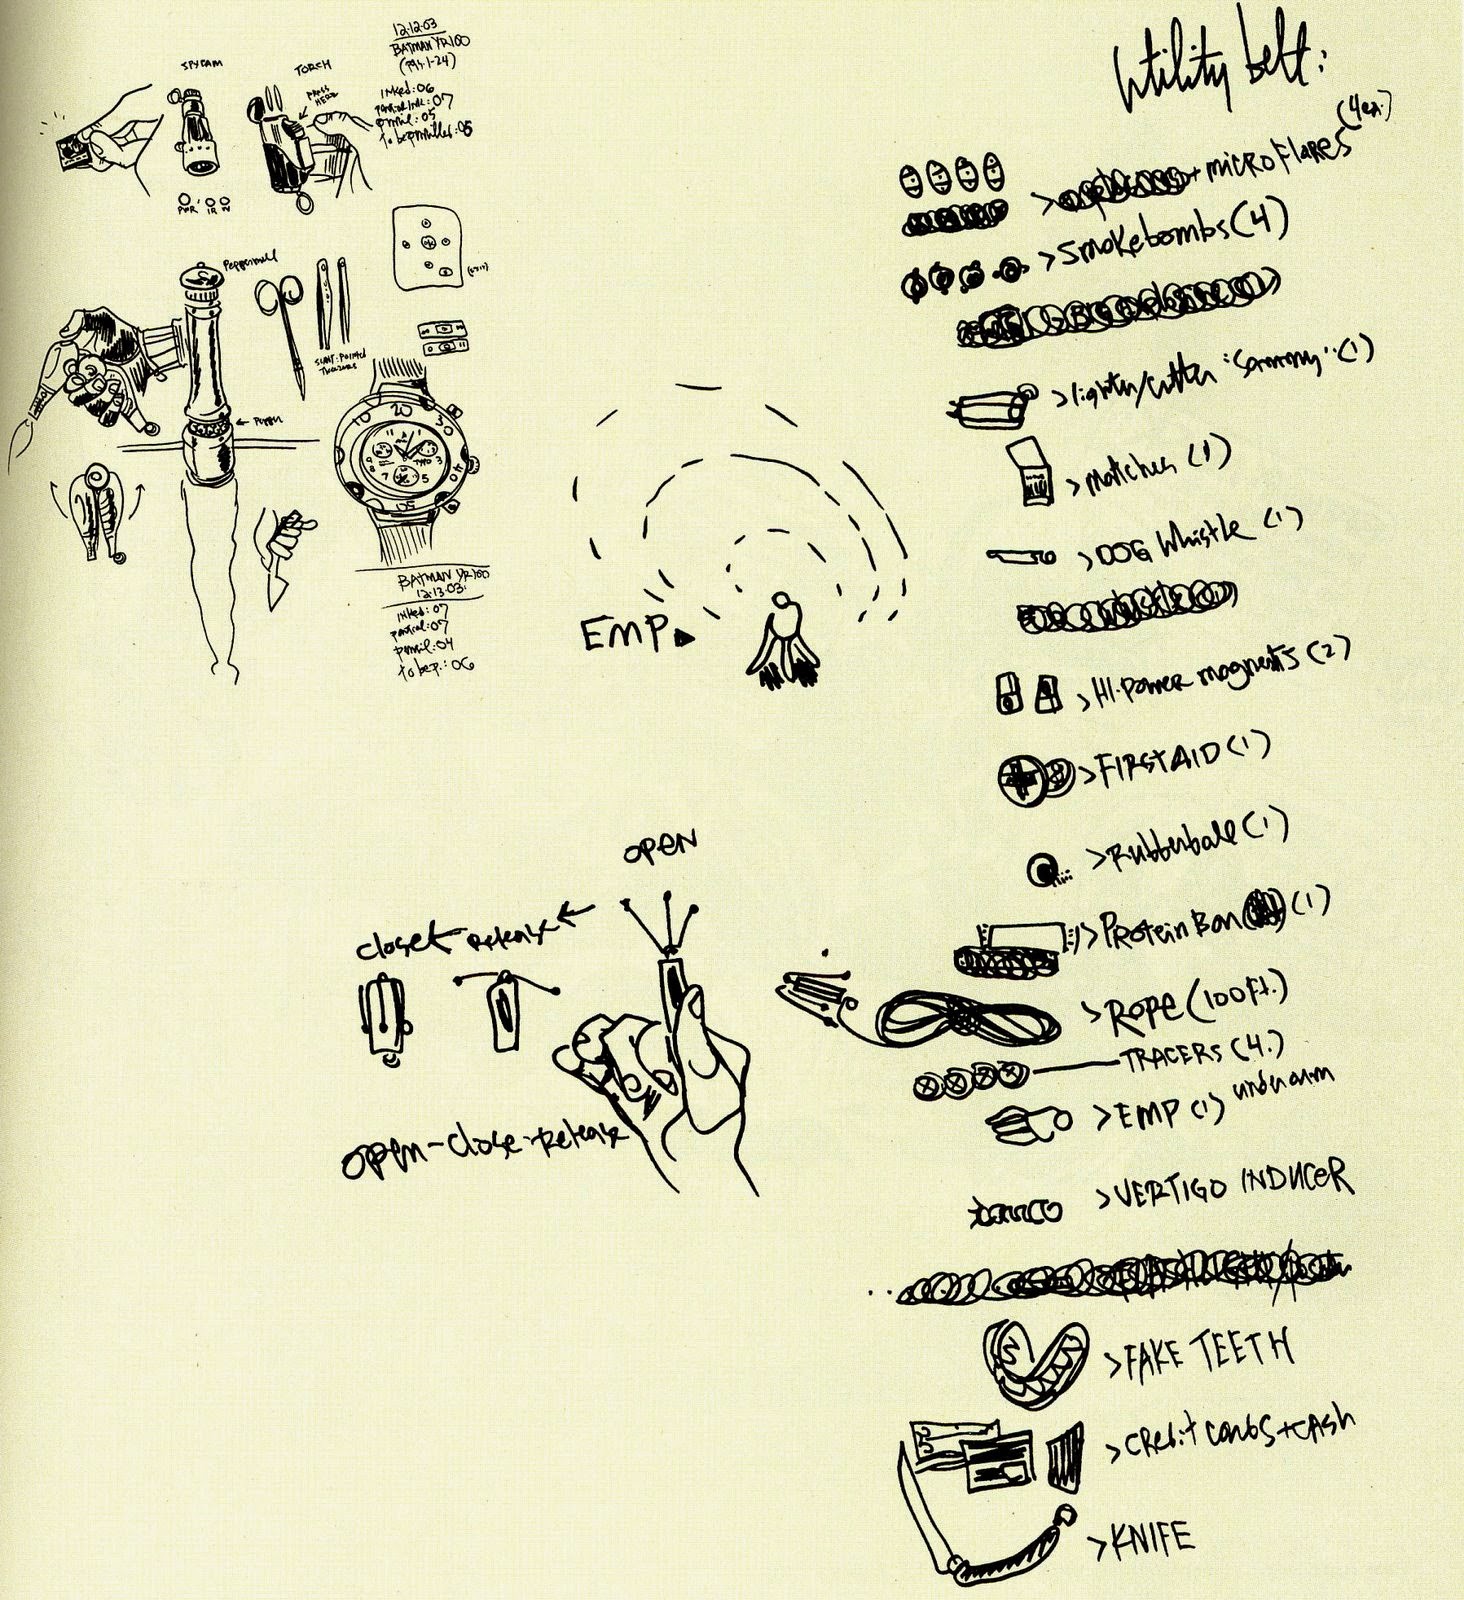 SPYCAM
TORCH
PRESS HERE
PWR IR
12.12.03
BATMAN YR100
inked: 06
partial ink: 07
pencil: 05
to be pencilled: 05
Peppermill
SLANT-POINTED
TWEEZERS
10 20 30
BATMAN YR100
12.13.03
inked: 07
partial: 07
pencil: 04
to be p.: 06
EMP
OPEN
closet release
open-close-release
Utility belt:
+ microflares (4ea.)
> Smokebombs (4)
> lighter/cutter "Sammy" (1)
> matches (1)
> DOG Whistle (1)
> HI-POWER magnents (2)
> FIRST AID (1)
> Rubberball (1)
> Protein Bar (1)
> ROPE (100 Ft.)
TRACERS (4.)
> EMP (1) underarm
> VERTIGO INDUCER
> FAKE TEETH
> CREDIT CARDS + CASH
> KNIFE